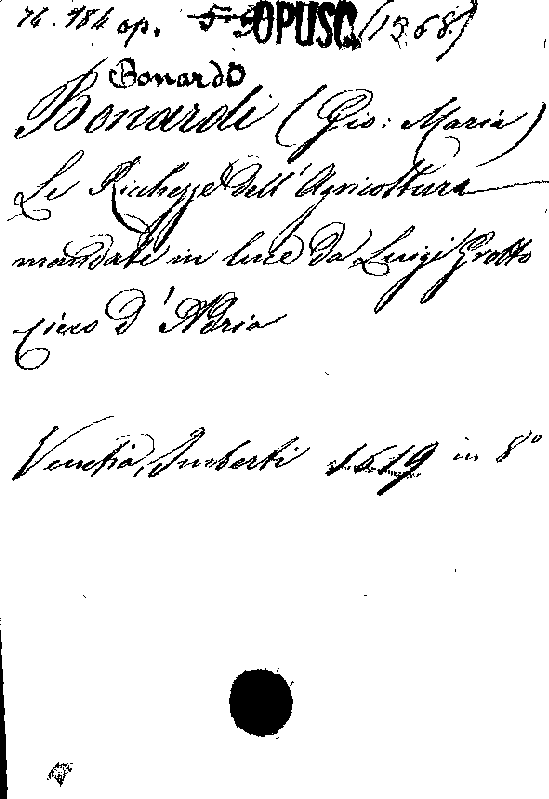 76.184 op. 59 OPUSC. (1368)
Bonardo
Bonardi (Gio: Maria)
Le Richezze dell' Agricoltura
mandate in luce da Luigi Grotto
Cieco d'Adria
Venetia, Imberti 1619 in 8°